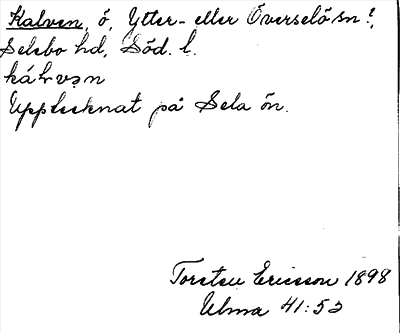 Kalven, ö, Ytter- eller Överselö sn?,
Selebo hd, Söd. l.
Upptecknat på Sela ön.
Torsten Ericsson 1898
Ulma 41:52